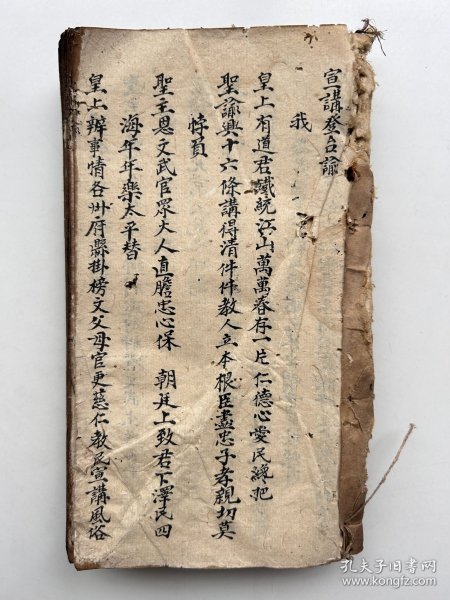 宣講登台諭
我
皇上有道君鐵統江山萬萬春存一片仁德心愛民總犯
聖諭興十六條講得清件件教人立本根臣盡忠子孝親切莫
悖負
聖主恩文武官眾大人直膽忠心保 朝廷上致君下澤民四
海年年樂太平替
皇上辦事情各州府縣掛榜文父母官更慈仁教民宣講風俗
孔夫子旧书网
www.kongfz.com